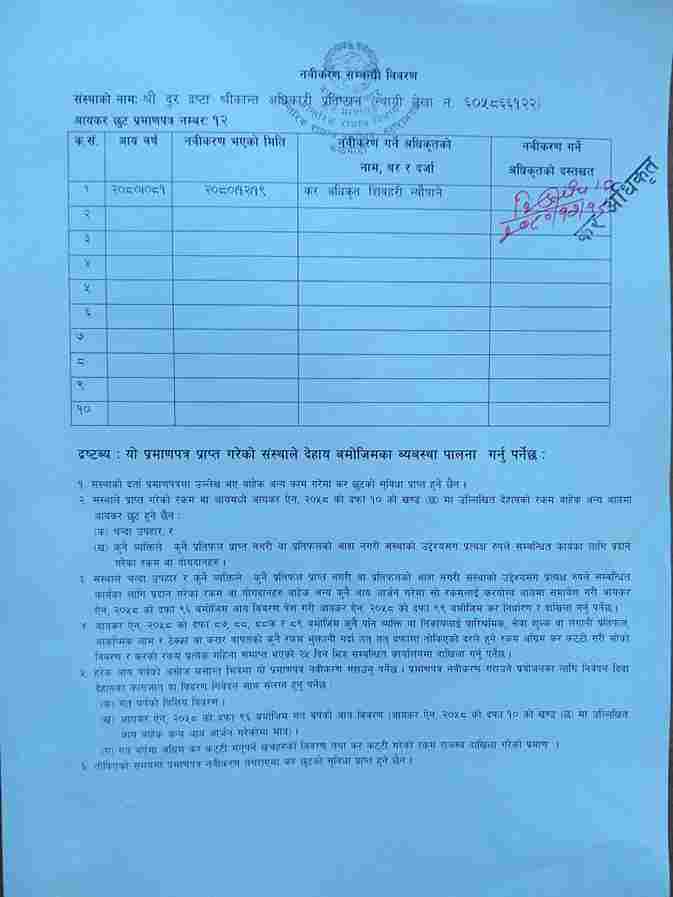 नवीकरण सम्बन्धी विवरण
संस्थाको नामः श्री दुर द्रष्टा श्रीकान्त अधिकारी प्रतिष्ठान (स्थायी लेखा नं. ६०५८६६१२२)
आयकर छुट प्रमाणपत्र नम्बरः १२
क्र.सं. आय वर्ष नवीकरण भएको मिति नवीकरण गर्ने अधिकृतको नवीकरण गर्ने
नाम, थर र दर्जा अधिकृतको दस्तखत
१ २०८०/०८१ २०८०/१२/१९ कर अधिकृत शिवहरी न्यौपाने
कर अधिकृत
२
३
४
५
६
७
८
९
१०
द्रष्टव्य : यो प्रमाणपत्र प्राप्त गरेको संस्थाले देहाय बमोजिमका व्यवस्था पालना गर्नु पर्नेछ :
१. संस्थाको दर्ता प्रमाणपत्रमा उल्लेख भए बाहेक अन्य काम गरेमा कर छुटको सुविधा प्राप्त हुने छैन ।
२. संस्थाले प्राप्त गरेको रकम वा आयमध्ये आयकर ऐन, २०५८ को दफा १० को खण्ड (छ) मा उल्लिखित देहायको रकम बाहेक अन्य आयमा
आयकर छुट हुने छैन :
(क) चन्दा उपहार, र
(ख) कुनै व्यक्तिले कुनै प्रतिफल प्राप्त नगरी वा प्रतिफलको आशा नगरी संस्थाको उद्देश्यसंग प्रत्यक्ष रुपले सम्बन्धित कार्यका लागि प्रदान
गरेको रकम वा योगदानहरु ।
३. संस्थाले चन्दा उपहार र कुनै व्यक्तिले कुनै प्रतिफल प्राप्त नगरी वा प्रतिफलको आशा नगरी संस्थाको उद्देश्यसंग प्रत्यक्ष रुपले सम्बन्धित
कार्यका लागि प्रदान गरेको रकम वा योगदानहरु बाहेक अन्य कुनै आय आर्जन गरेमा सो रकमलाई करयोग्य आयमा समावेश गरी आयकर
ऐन, २०५८ को दफा ९६ बमोजिम आय विवरण पेश गरी आयकर ऐन, २०५८ को दफा ९९ बमोजिम कर निर्धारण र दाखिला गर्नु पर्नेछ ।
४. आयकर ऐन, २०५८ को दफा ८७, ८८, ८८क र ८९ बमोजिम कुनै पनि व्यक्ति वा निकायलाई पारिश्रमिक, सेवा शुल्क वा लगानी प्रतिफल,
आकस्मिक लाभ र ठेक्का वा करार वापतको कुनै रकम भुक्तानी गर्दा तत् तत् दफामा तोकिएको दरले हुने रकम अग्रिम कर कट्टी गरी सोको
विवरण र करको रकम प्रत्येक महिना समाप्त भएको २५ दिन भित्र सम्बन्धित कार्यालयमा दाखिला गर्नु पर्नेछ ।
५. हरेक आय वर्षको असोज मसान्त भित्रमा यो प्रमाणपत्र नवीकरण गराउनु पर्नेछ । प्रमाणपत्र नवीकरण गराउने प्रयोजनका लागि निवेदन दिंदा
देहायका कागजात वा विवरण निवेदन साथ संलग्न हुनु पर्नेछ :
(क) गत वर्षको वित्तिय विवरण ।
(ख) आयकर ऐन, २०५८ को दफा ९६ बमोजिम गत वर्षको आय विवरण (आयकर ऐन, २०५८ को दफा १० को खण्ड (छ) मा उल्लिखित
आय बाहेक अन्य आय आर्जन गरेकोमा मात्र) ।
(ग) गत वर्षमा अग्रिम कर कट्टी गर्नुपर्ने खर्चहरुको विवरण तथा कर कट्टी गरेको रकम राजस्व दाखिला गरेको प्रमाण ।
६. तोकिएको समयमा प्रमाणपत्र नवीकरण नगराएमा कर छुटको सुविधा प्राप्त हुने छैन ।